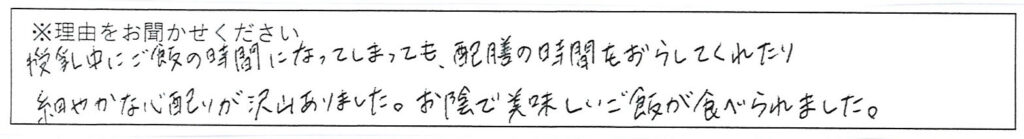 ※理由をお聞かせください
授乳中にご飯の時間になってしまっても、配膳の時間をおらしてくれたり
細やかな心配りが沢山ありました。お陰で美味しいご飯が食べられました。